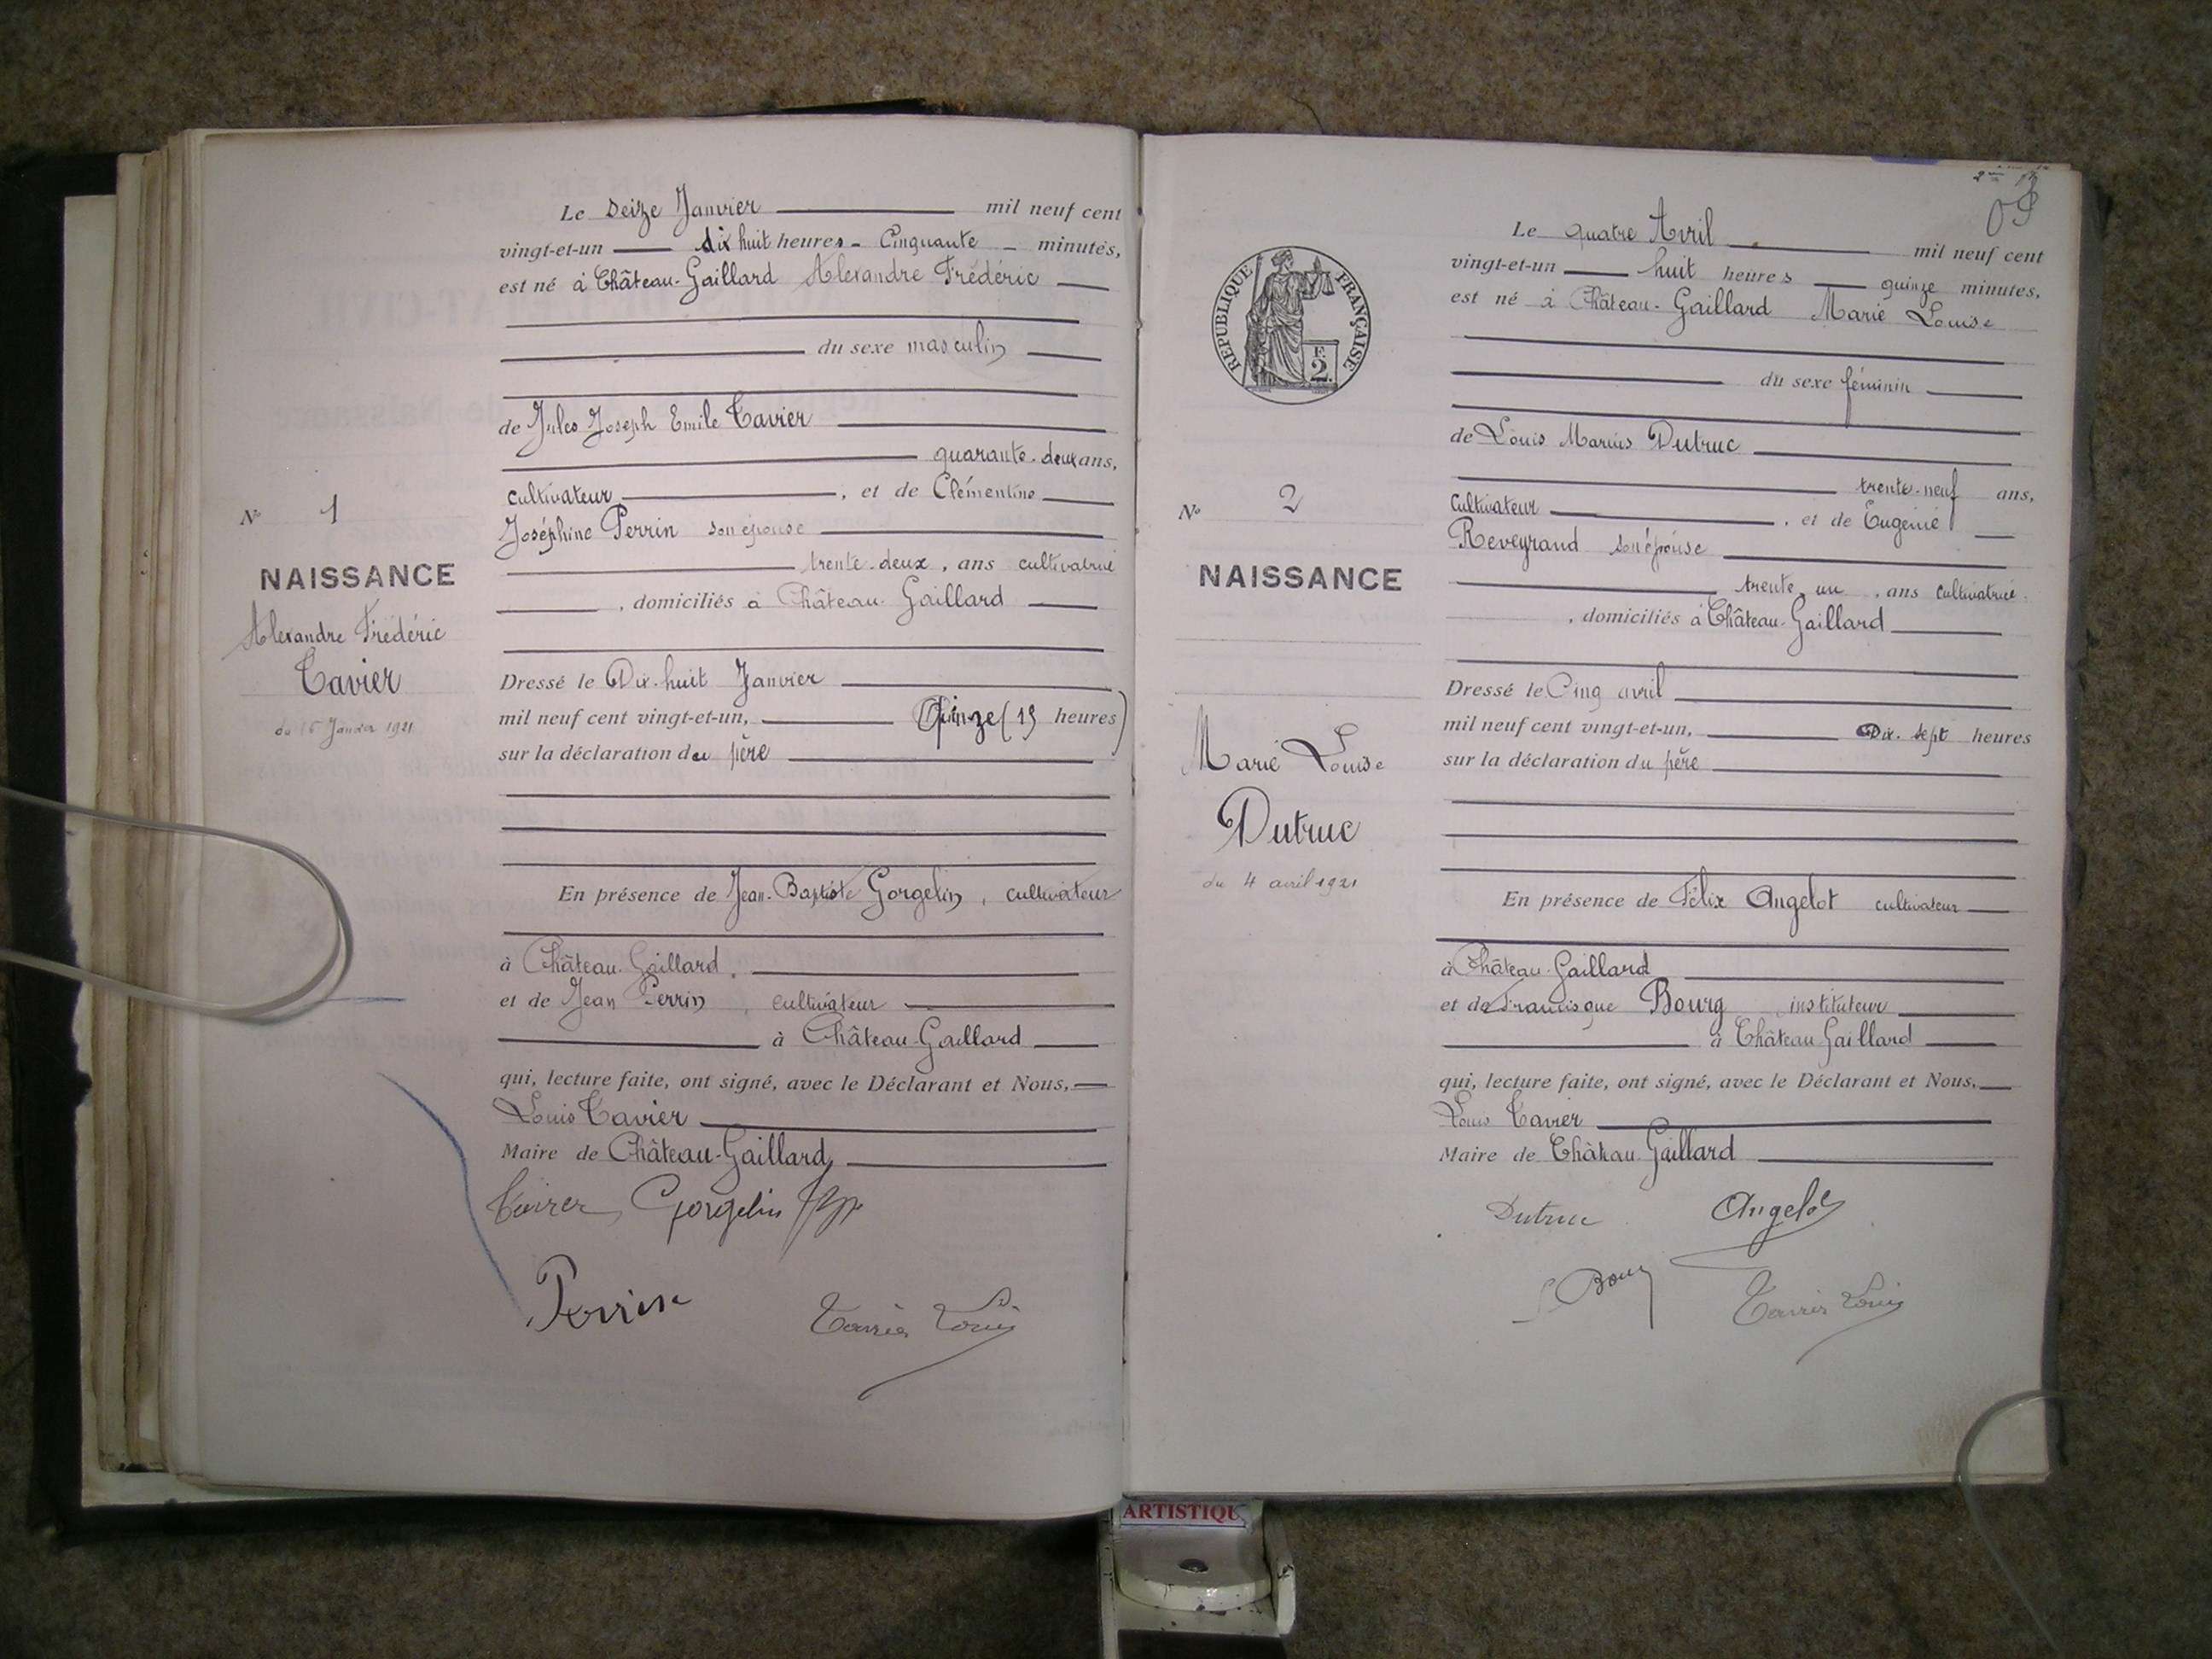 Le seize Janvier mil neuf cent
vingt-et-un dix huit heures - Cinquante - minutes,
est né à Château-Gaillard Alexandre Frédéric
du sexe masculin
de Jules Joseph Emile Tavier
quarante-deux ans,
cultivateur, et de Clémentine
Joséphine Perrin son épouse
trente-deux, ans cultivatrice
, domiciliés à Château-Gaillard
Nº 1
NAISSANCE
Alexandre Frédéric
Tavier
du 16 Janvier 1921
Dressé le Dix-huit Janvier
mil neuf cent vingt-et-un, Quinze (15 heures)
sur la déclaration du père
En présence de Jean-Baptiste Gorgelin, cultivateur
à Château-Gaillard.
et de Jean Perrin, cultivateur
à Château-Gaillard
qui, lecture faite, ont signé, avec le Déclarant et Nous,
Louis Tavier
Maire de Château-Gaillard
Tavier Gorgelin
Perrin
Tavier Louis
Le quatre Avril mil neuf cent
vingt-et-un huit heures quinze minutes,
est né à Château-Gaillard Marie Louise
RÉPUBLIQUE FRANÇAISE
F.
2.
du sexe féminin
de Louis Marius Dutruc
trente-neuf ans,
cultivateur, et de Eugénie
Reveyrand son épouse
trente un, ans cultivatrice
, domiciliés à Château-Gaillard
Nº 2
NAISSANCE
Marie Louise
Dutruc
du 4 avril 1921
Dressé le Cinq avril
mil neuf cent vingt-et-un, Dix-sept heures
sur la déclaration du père
En présence de Félix Angelot cultivateur
à Château-Gaillard
et de Francisque Bourg, instituteur
à Château Gaillard
qui, lecture faite, ont signé, avec le Déclarant et Nous,
Louis Tavier
Maire de Château-Gaillard
Dutruc Angelot
Bourg
Tavier Louis
ARTISTIQU